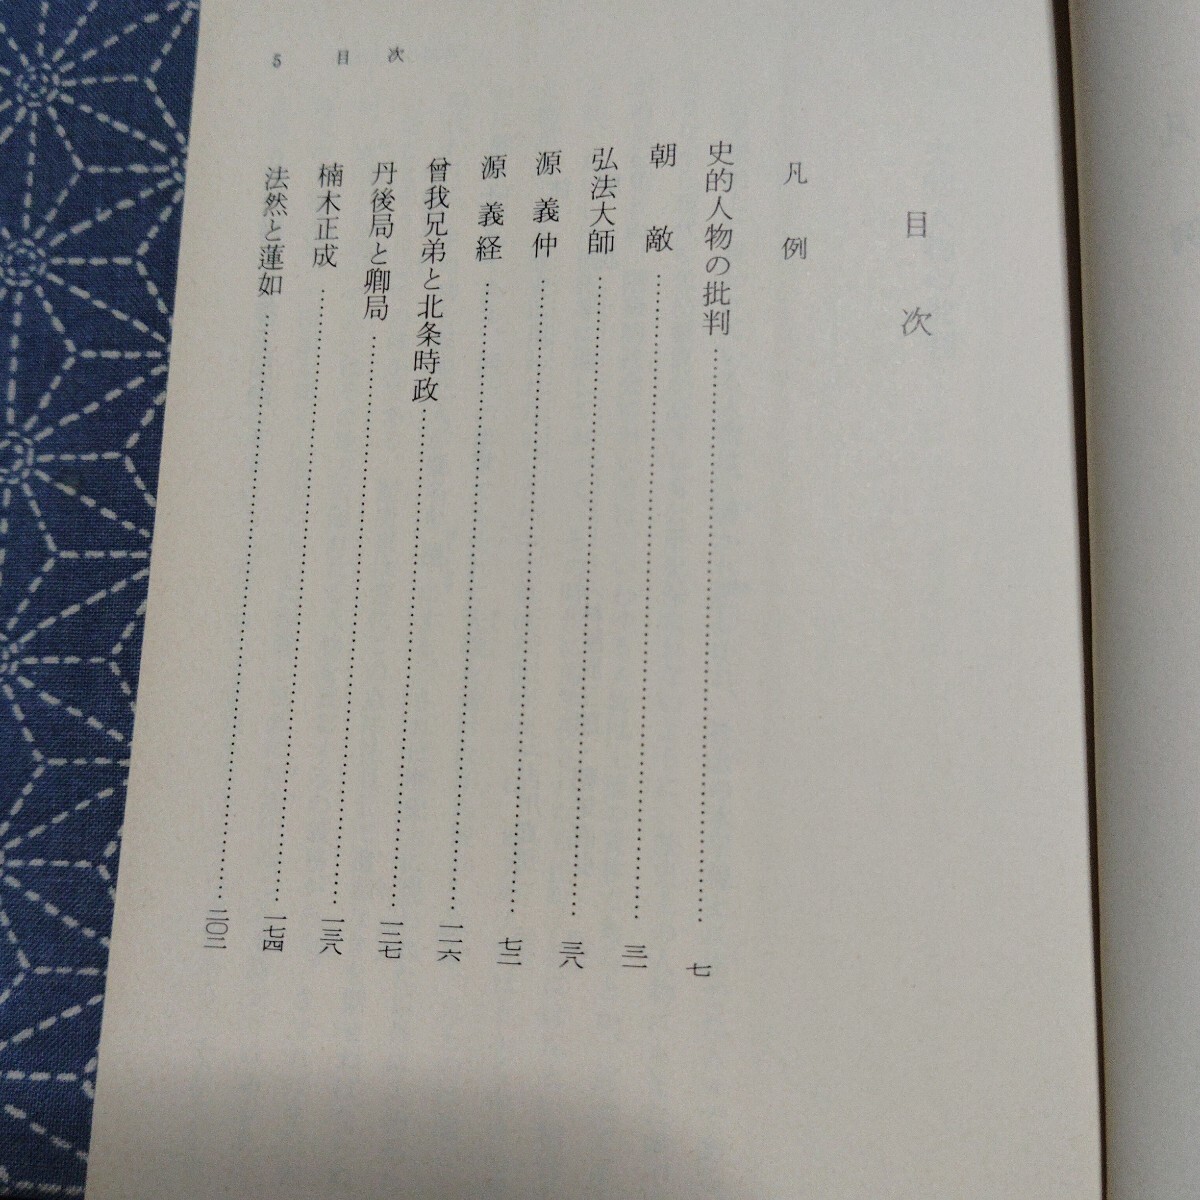 5 目次
目次
凡例
史的人物の批判……七
朝敵……三一
弘法大師……三八
源義仲……七二
源義経……一一六
曾我兄弟と北条時政……一二七
丹後局と卿局……一三八
楠木正成……一七四
法然と蓮如……二〇二